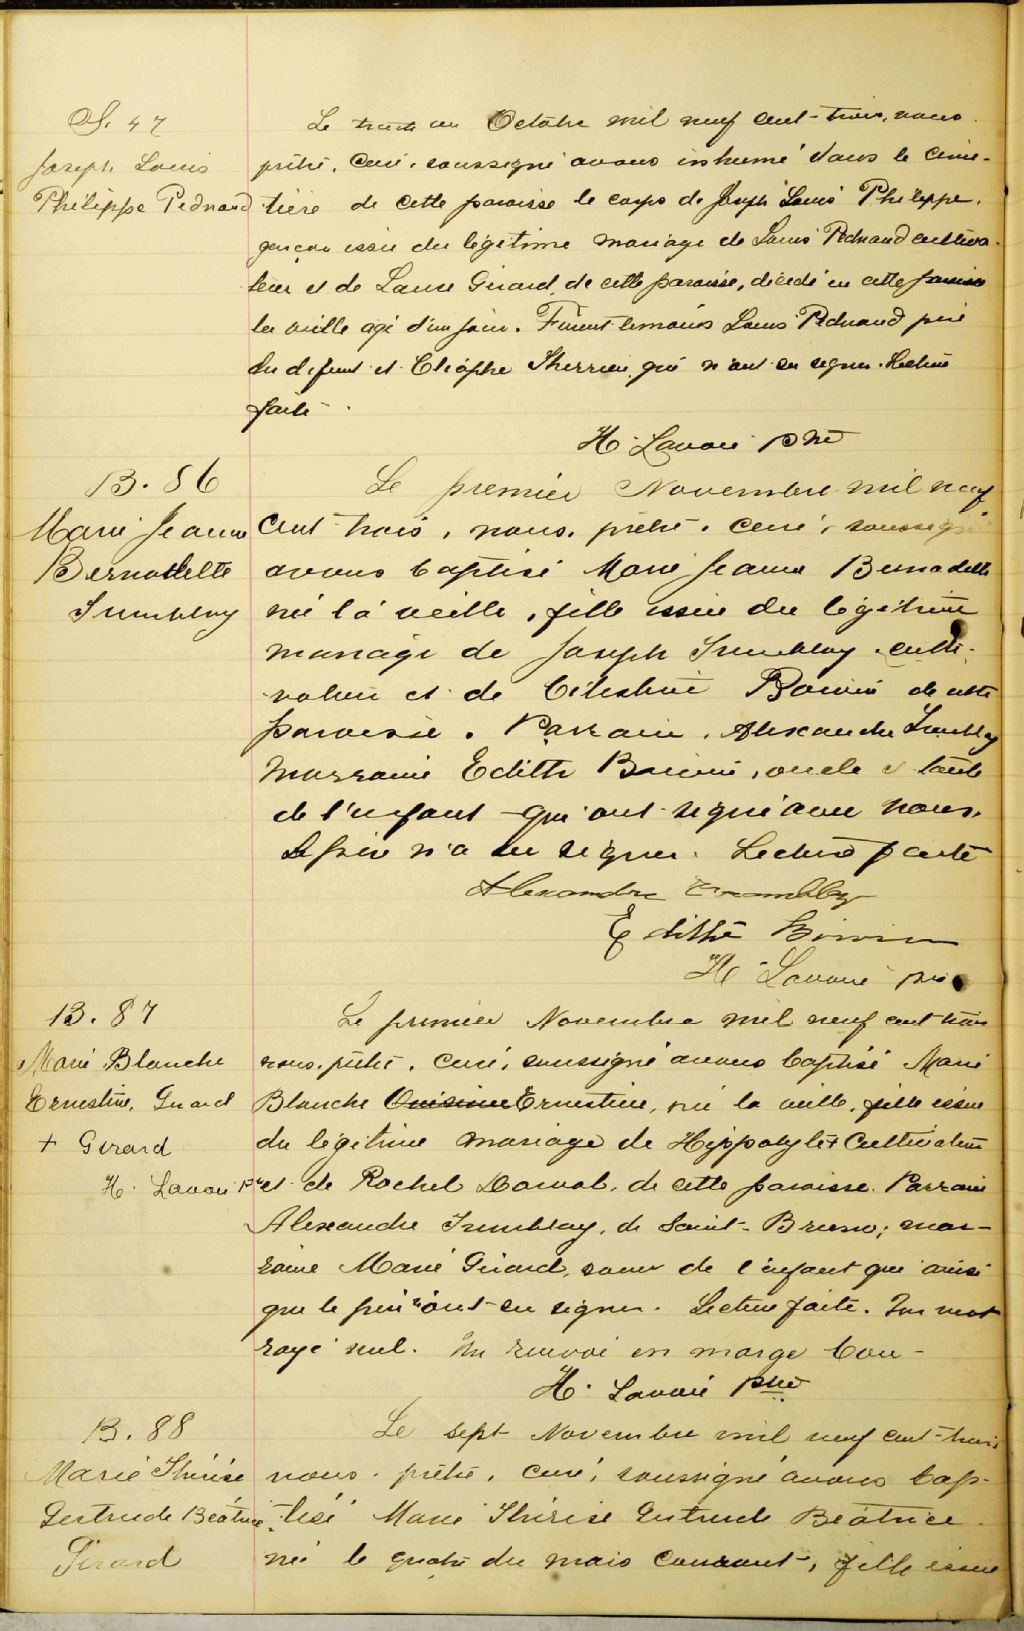 S. 47
Joseph Louis
Philippe Pednaud
Le trente un Octobre mil neuf cent-trois, nous
prêtre, curé, soussigné avons inhumé dans le cime-
tière de cette paroisse le corps de Joseph Louis Philippe,
garçon issu du légitime mariage de Louis Pednaud cultiva-
teur et de Laure Girard, de cette paroisse, décédé en cette paroisse
la veille agé d'un jour. Furent témoins Louis Pednaud père
du défunt et Cléophe Therrien qui n'ont su signer. Lecture
faite.
H. Lavoie ptre
B. 86
Marie Jeanne
Bernadette
Tremblay
Le premier Novembre mil neuf
cent trois, nous, prêtre, curé, soussigné
avons baptisé Marie Jeanne Bernadette
née la veille, fille issue du légitime
mariage de Joseph Tremblay culti-
vateur et de Célestine Boivin de cette
paroisse. Parrain, Alexandre Tremblay
marraine Edith Boivin, oncle et tante
de l'enfant qui ont signé avec nous.
Le père n'a su signer. Lecture faite
Alexandre Tremblay
Edithe Boivin
H. Lavoie ptre
B. 87
Marie Blanche
Ernestine, Girard
+ Girard
H. Lavoie ptre
Le premier Novembre mil neuf cent trois
nous, prêtre, curé, soussigné avons baptisé Marie
Blanche Ernestine, née la veille, fille issue
du légitime mariage de Hippolyte + cultivateur
et de Rachel Dorval, de cette paroisse. Parrain
Alexandre Tremblay, de Saint-Bruno; mar-
raine Marie Girard, soeur de l'enfant qui ainsi
que le père n'ont su signer. Lecture faite. Un mot
rayé nul. Un renvoi en marge bon-
H. Lavoie ptre
B. 88
Marie Thérèse
Gertrude Béatrice
Girard
Le sept Novembre mil neuf cent-trois
nous, prêtre, curé, soussigné avons bap-
tisé Marie Thérèse Gertrude Béatrice
née le quatre du mois courant, fille issue